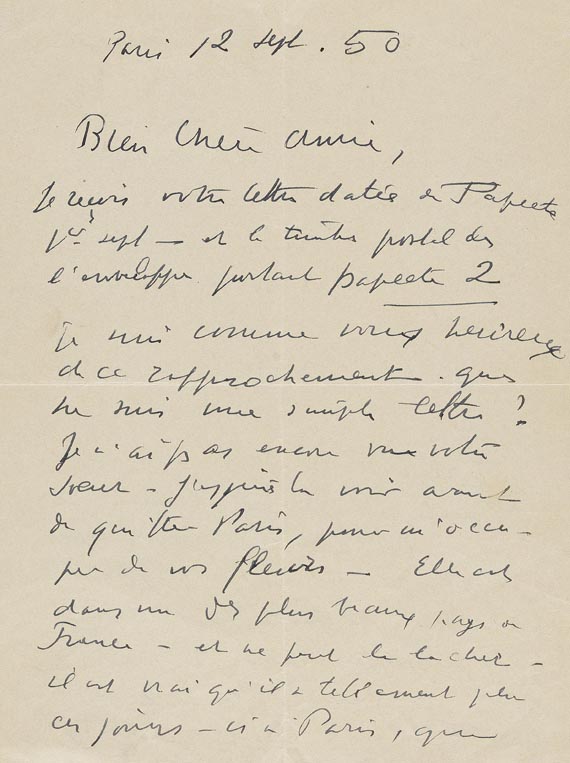 Paris 12 sept. 50
Bien chère amie,
Je reçois votre lettre datée de Papeete
1er sept — et le timbre postal de
l'enveloppe portant papeete 2
Je suis comme vous heureux
de ce rapprochement. que
ne suis une simple lettre !
Je n'ai pas encore vu votre
soeur — J'espère la voir avant
de quitter Paris, pour m'occu-
per de vos fleurs — Elle est
dans un des plus beaux pays de
France — et ne peut le lacher —
il est vrai qu'il a tellement plu
ces jours — ci à Paris, que